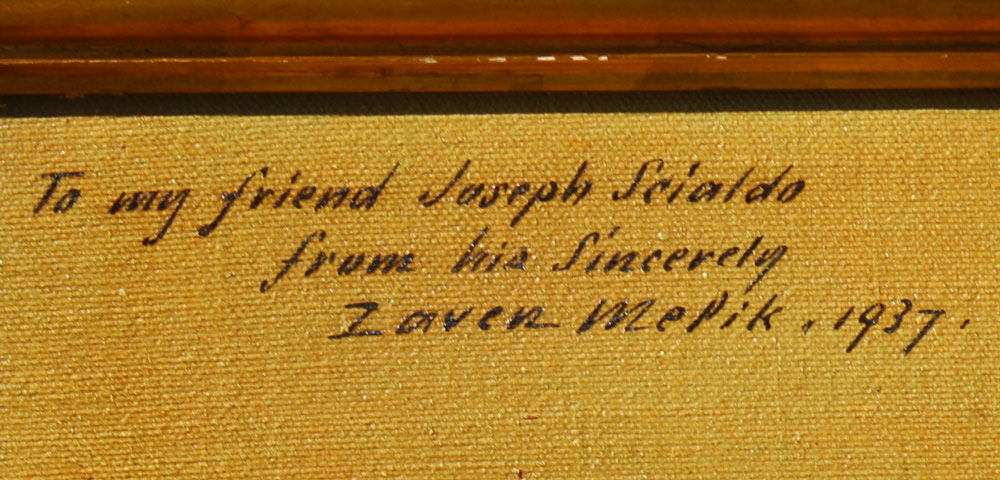 To my friend Joseph Scialdo
from his Sincerely
Zaven Melik . 1937.